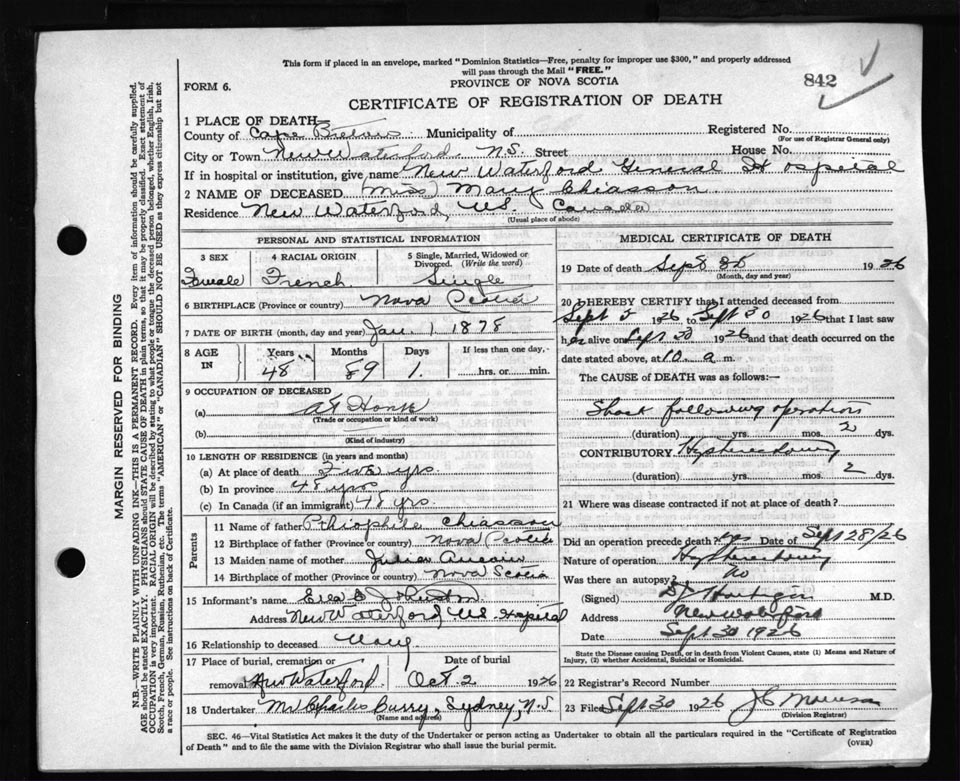 This form if placed in an envelope, marked "Dominion Statistics—Free, penalty for improper use $300," and properly addressed
will pass through the Mail "FREE."
842
FORM 6.
PROVINCE OF NOVA SCOTIA
CERTIFICATE OF REGISTRATION OF DEATH
1 PLACE OF DEATH
County of Cape Breton Municipality of Registered No.
(For use of Registrar General only)
City or Town New Waterford N.S. Street House No.
If in hospital or institution, give name New Waterford General Hospital
2 NAME OF DECEASED (Miss) Mary Chiasson
Residence New Waterford, Canada
(Usual place of abode)
PERSONAL AND STATISTICAL INFORMATION
3 SEX 4 RACIAL ORIGIN 5 Single, Married, Widowed or Divorced. (Write the word)
Female French Single
6 BIRTHPLACE (Province or country) Nova Scotia
7 DATE OF BIRTH (month, day and year) Jan 1. 1878
8 AGE IN Years Months Days If less than one day,
48 1. hrs. or min.
9 OCCUPATION OF DECEASED
(a) At Home
(Trade or occupation or kind of work)
(b)
(Kind of industry)
10 LENGTH OF RESIDENCE (in years and months)
(a) At place of death Five yrs.
(b) In province 48 yrs
(c) In Canada (if an immigrant) 48 yrs.
Parents
11 Name of father Chiasson
12 Birthplace of father (Province or country) Nova Scotia
13 Maiden name of mother
14 Birthplace of mother (Province or country) Nova Scotia
15 Informant's name Johnston
Address New Waterford Hospital
16 Relationship to deceased
17 Place of burial, cremation or Date of burial
removal New Waterford. Oct. 2 1926
18 Undertaker Mr Charles Curry, Sydney, N.S.
(Name and address)
MEDICAL CERTIFICATE OF DEATH
19 Date of death Sept 1926
(Month, day and year)
20 I HEREBY CERTIFY that I attended deceased from
Sept 1926 to Sept 30 1926 that I last saw
her alive on Sept 30 1926 and that death occurred on the
date stated above, at 10 a m.
The CAUSE OF DEATH was as follows:—
Shock following operation
(duration) yrs. mos. 2 dys.
CONTRIBUTORY Hysterectomy
(duration) yrs. mos. 2 dys.
21 Where was disease contracted if not at place of death?
Did an operation precede death? yes Date of Sept 28/26
Nature of operation Hysterectomy
Was there an autopsy? No
(Signed) M.D.
Address New Waterford
Date Sept 30 1926
State the Disease causing Death, or in death from Violent Causes, state (1) Means and Nature of
Injury, (2) whether Accidental, Suicidal or Homicidal.
22 Registrar's Record Number
23 Filed Sept 30 1926
(Division Registrar)
SEC. 46—Vital Statistics Act makes it the duty of the Undertaker or person acting as Undertaker to obtain all the particulars required in the "Certificate of Registration
of Death" and to file the same with the Division Registrar who shall issue the burial permit.
(OVER)
MARGIN RESERVED FOR BINDING
N.B.—WRITE PLAINLY WITH UNFADING INK—THIS IS A PERMANENT RECORD. Every item of information should be carefully supplied.
AGE should be stated EXACTLY. PHYSICIANS should STATE CAUSE OF DEATH in plain terms, so that it may be properly classified. Exact statement of
OCCUPATION is very important. RACIAL ORIGIN will be described by stating to what people or tongue the deceased person belonged, whether English, Irish,
Scotch, French, German, Russian, Ruthenian, etc. The terms "AMERICAN" or "CANADIAN" SHOULD NOT BE USED as they express citizenship but not
a race or people. See instructions on back of Certificate.